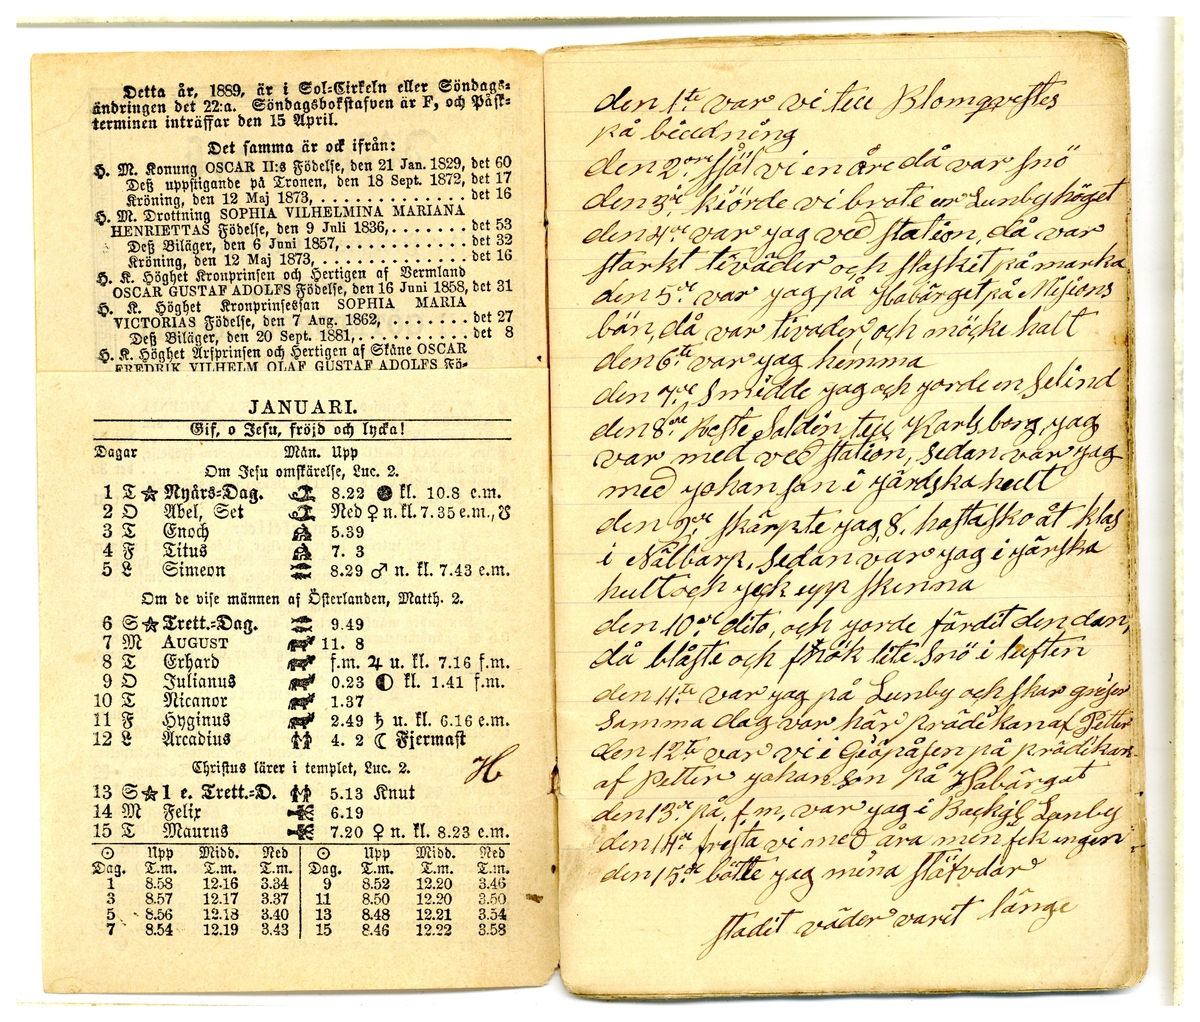 Detta år, 1889, är i Sol-Cirkeln eller Söndags-
ändringen det 22:a. Söndagsbokstafven är F, och Påsk-
terminen inträffar den 15 April.
Det samma är ock ifrån:
H. M. Konung OSCAR II:s Födelse, den 21 Jan. 1829, det 60
Deß uppstigande på Tronen, den 18 Sept. 1872, det 17
Kröning, den 12 Maj 1873, . . . . . . . . . . . . . . . det 16
H. M. Drottning SOPHIA VILHELMINA MARIANA
HENRIETTAS Födelse, den 9 Juli 1836, . . . . . . . . det 53
Deß Biläger, den 6 Juni 1857, . . . . . . . . . . . . . det 32
Kröning, den 12 Maj 1873, . . . . . . . . . . . . . . . det 16
H. K. Höghet Kronprinsen och Hertigen af Vermland
OSCAR GUSTAF ADOLFS Födelse, den 16 Juni 1858, det 31
H. K. Höghet Kronprinsessan SOPHIA MARIA
VICTORIAS Födelse, den 7 Aug. 1862, . . . . . . . . . det 27
Deß Biläger, den 20 Sept. 1881, . . . . . . . . . . . det 8
H. K. Höghet Arfprinsen och Hertigen af Skåne OSCAR
FREDRIK VILHELM OLAF GUSTAF ADOLFS Fö-
JANUARI.
Gif, o Jesu, fröjd och lycka!
Dagar Mån. Upp
Om Jesu omskärelse, Luc. 2.
1 T Nyårs-Dag. 8.22 kl. 10.8 e.m.
2 O Abel, Set Ned ♀ n. kl. 7.35 e.m., ☋
3 T Enoch 5.39
4 F Titus 7. 3
5 L Simeon 8.29 ♂ n. kl. 7.43 e.m.
Om de vise männen af Österlanden, Matth. 2.
6 S Trett.-Dag. 9.49
7 M AUGUST 11. 8
8 T Erhard f.m. ♃ u. kl. 7.16 f.m.
9 O Julianus 0.23 kl. 1.41 f.m.
10 T Nicanor 1.37
11 F Hyginus 2.49 ♄ u. kl. 6.16 e.m.
12 L Arcadius 4. 2 ☾ Fjermast
Christus lärer i templet, Luc. 2. H
13 S 1 e. Trett.-D. 5.13 Knut
14 M Felix 6.19
15 T Maurus 7.20 ♀ n. kl. 8.23 e.m.
☉ Upp Midd. Ned ☉ Upp Midd. Ned
Dag. T.m. T.m. T.m. Dag. T.m. T.m. T.m.
1 8.58 12.16 3.34 9 8.52 12.20 3.46
3 8.57 12.17 3.37 11 8.50 12.20 3.50
5 8.56 12.18 3.40 13 8.48 12.21 3.54
7 8.54 12.19 3.43 15 8.46 12.22 3.58
den 1te var vi till Blomqvistes
på biudning
den 2are sjöt vi en åre då var snö
den 3di kiörde vi brate ur Lunby höget
den 4de var yag ved station, då var
starkt tiväder och slaskit på marka
den 5de var yag på Habärget på Misions
bön, då var tivader, och möcke halt
den 6te var yag hemma
den 7de smidde yag och yorde en Selind
den 8de Reste Saldin till Karlsborg, yag
var med ved station, sedan var yag
med yohanson i yärdska hult
den 9de skärpte yag 8. hastasko åt klas
i Nälbarp, sedan var yag i yärska
hult och yick upp skinna
den 10de dito, och yorde färdit den dan,
då blåste och snök lite snö i luften
den 11te var yag på Lunby och skar griser
samma dag var här prädikan af Petter
den 12te var vi i Giöpåsen på prädikan
af petter yohanson på Habärget
den 13de på f, m, var yag i Lunby
den 14de fresta vi med åra men fik ingen
den 15de bötte yag mina stöfvdar
stadit väder varit länge